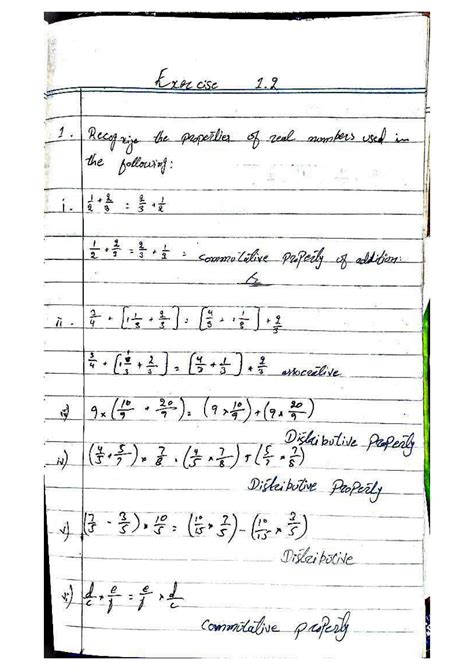 Exercise 1.2
1. Recognize the properties of real numbers used in
the following:
i. 1/2 + 2/3 = 2/3 + 1/2
1/2 + 2/3 = 2/3 + 1/2 = commutative property of addition.
ii.
associative
iii) 9 × (10/9 + 20/9) = (9 × 10/9) + (9 × 20/9)
Distributive Property
iv) (4/5 + 5/7) × 7/8 = (4/5 × 7/8) + (5/7 × 7/8)
Distributive Property
v)
Distributive
vi) d/c × e/f = e/f × d/c
commutative property